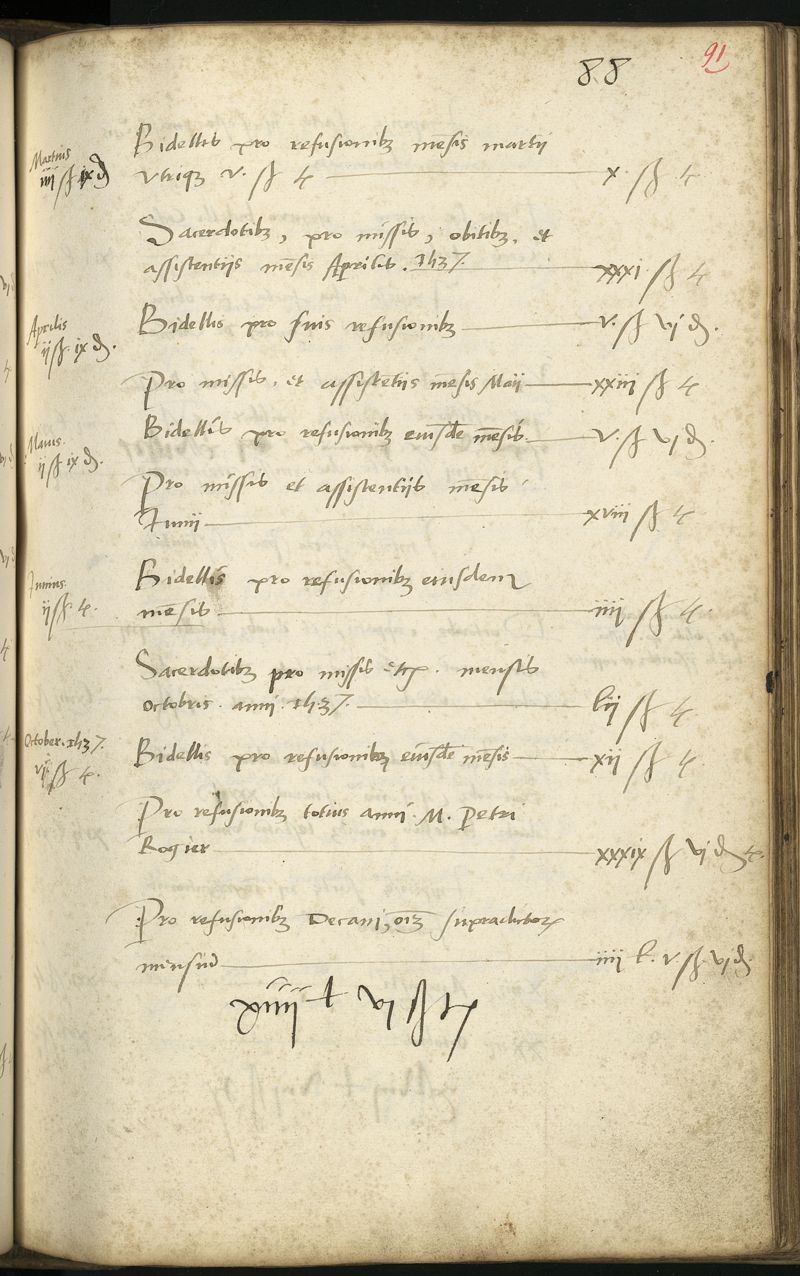 88
91
Martius
iiij ß ix d
Bidellis pro refusionibȝ mēsis martij
vtriqȝ v. ß x. ß
Sacerdotibȝ, pro missis, obitibȝ, et
assistentijs mēsis Aprilis. 1537. xxxi ß
Aprilis
ij ß ix d.
Bidellis pro suis refusionibȝ v. ß vj d.
Pro missis, et assistētijs mēsis Maij xxiij ß
Maius.
ij ß ix d.
Bidellis pro refusionibȝ eiusdē mēsis. v. ß vj d.
Pro missis et assistentijs mēsis
Junij xviij ß
Junius.
ij ß
Bidellis pro refusionibȝ eiusdem
mēsis iiij ß
Sacerdotibȝ pro missis etc. mensis
octobris. anni. 1537. lij ß
October. 1537.
vj ß
Bidellis pro refusionibȝ eiusdē mēsis xij ß
Pro refusionibȝ totius anni M. Petri
Rogier xxxix ß vj d
Pro refusionibȝ Decani, oīm supradictorȝ
mensiū iiij l. v ß. vj d.
xiiij vj ß